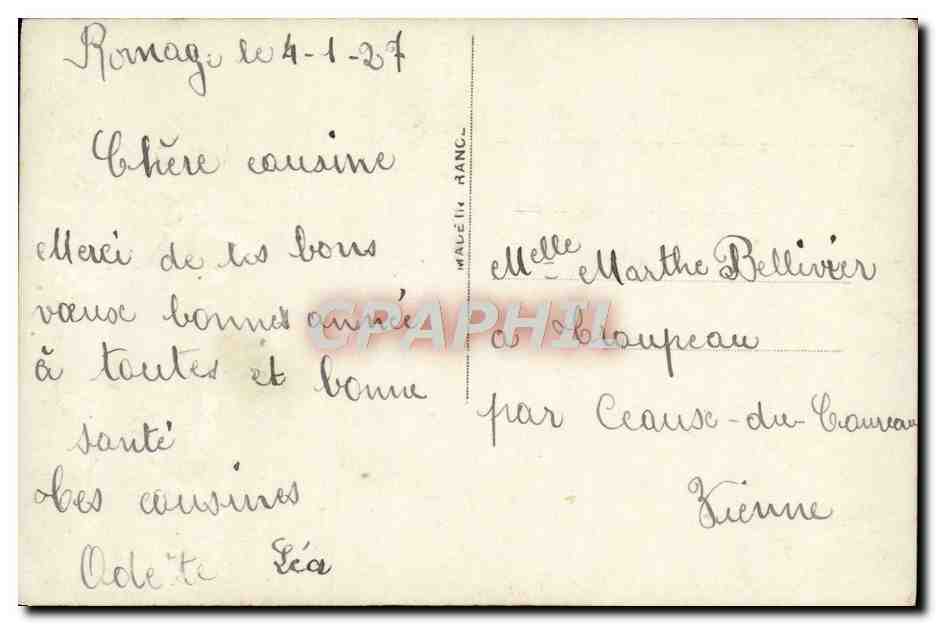 Romag le 4-1-27
Chère cousine
Merci de tes bons
vœux bonnes année
à toutes et bonne
santé
Tes cousines
Odette Léa
MADE IN FRANCE
Melle Marthe Bellivier
a Troupeau
par Ceaux-du-
Vienne
CPAPHIL